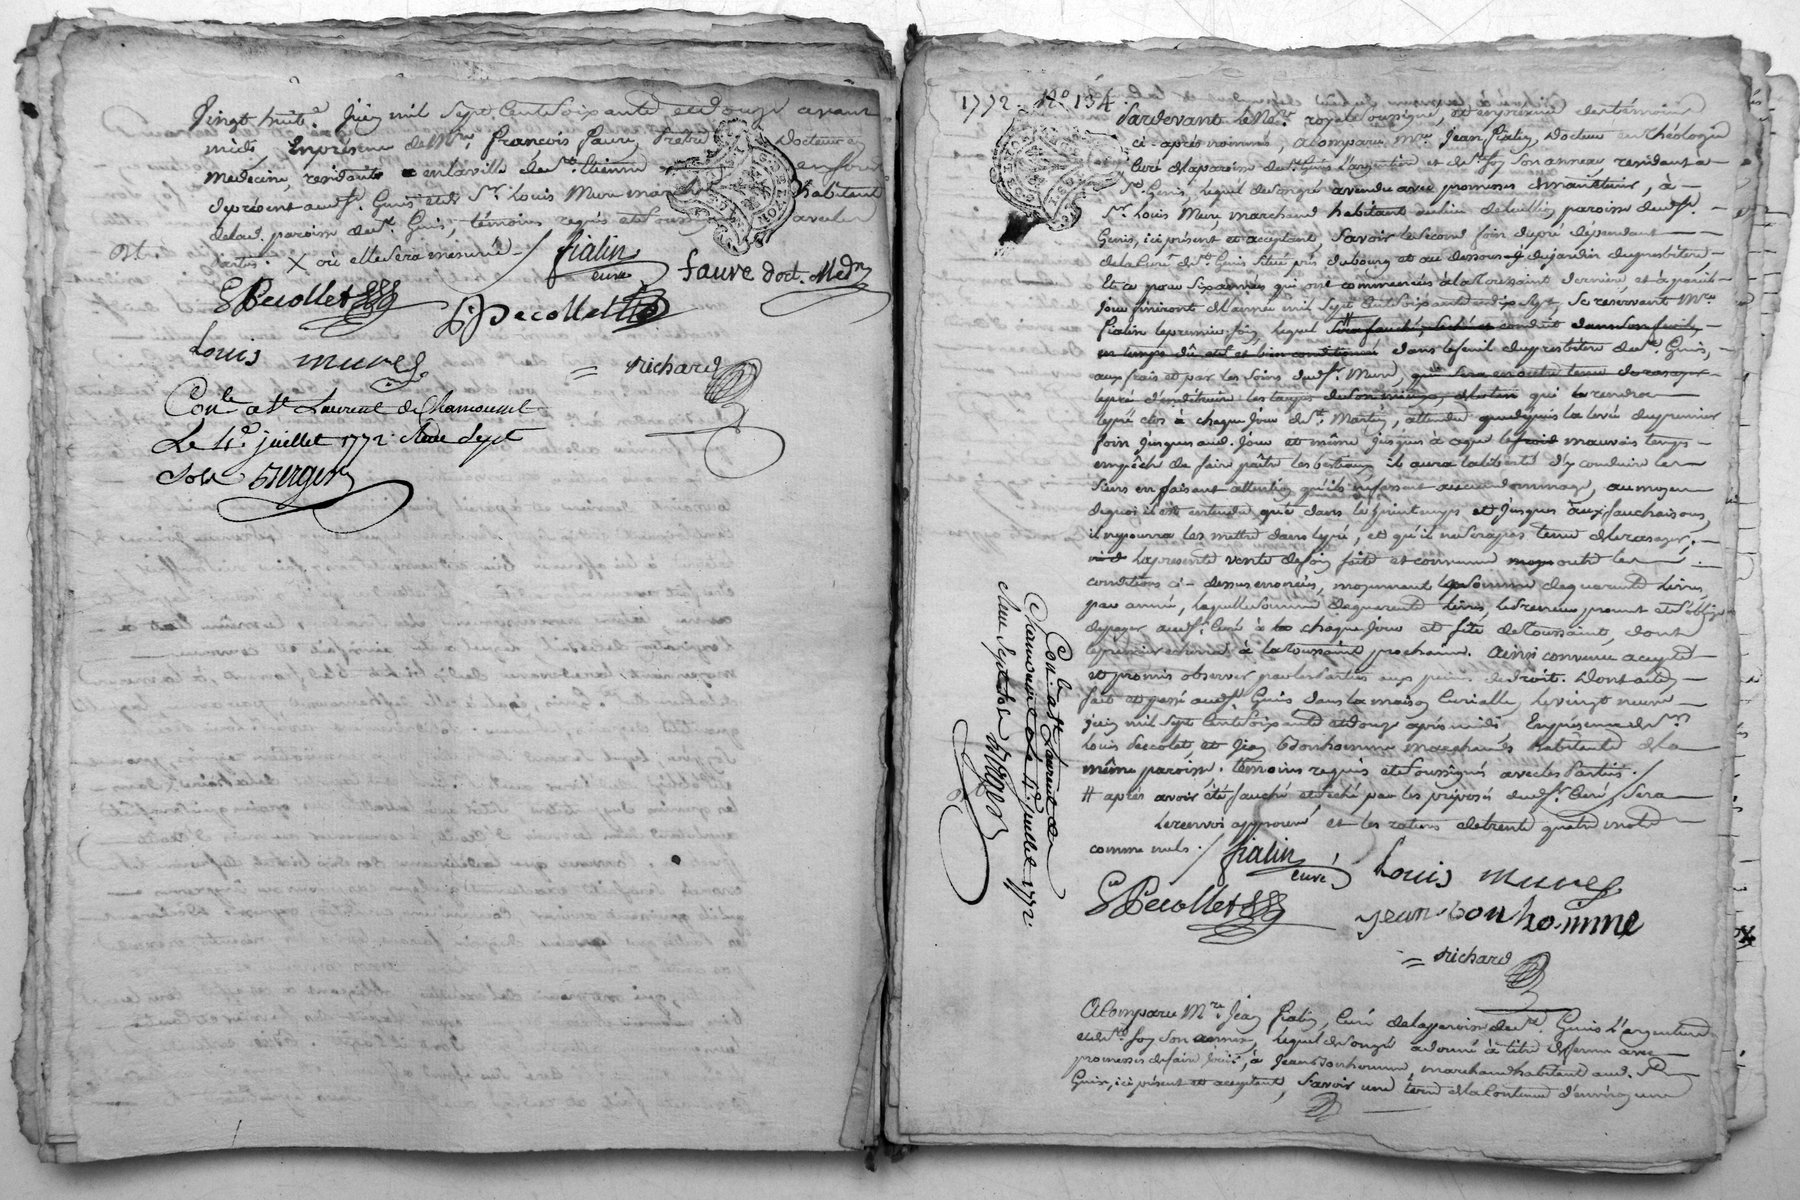 Vingt huit Juin mil Sept Cent Soixante et douze avant
midi En présence de Mre françois faure Prêtre Docteur en
medecine, residants en la ville de St. Etienne
de présent aud. St. Genis et de Sr. Louis Mure habitant
de lad. paroisse de St. Genis, témoins requis et Soussignés avec les
Parties. X où elle Sera mesurée
fialin
curé
faure doct. Medn
Pecollet
Pecollet
Louis mure
Richard
Conlé a St Laurent de Chamousset
Le 4e juillet 1772 Reçu Sept
Sols Berger
1772. No 134.
Pardevant le No.re royal Soussigné, et en présence des témoins
ci-après nommés, a Comparu Mre Jean fialin, Docteur en théologie
Curé de la paroisse de St. Genis L'argentiere et de Ste foy Son annexe, residant a
St. Genis, lequel de Son gré a vendu avec promesses de maintenir, à
Sr. Louis Mure marchand habitant au lieu de paroisse dud. St.
Genis, ici présent et acceptant, Savoir le Second foin du pré dependant
de la Cure de St. Genis Situé près du bourg et au dessous du jardin du presbitère,
Et ce pour Six années qui ont commencées à la toussaint derniere et à pareil
jour finiront de l'année mil Sept Cent Soixante et dix Sept, Se reservant Mre
fialin le premier foin, lequel # Sera fauché, Séché et conduit dans Son fenil
en temps dû et bien conditionné dans le fenil du presbitère de St. Genis,
aux frais et par les Soins dud. Sr. Mure, qui Sera en outre tenu de raser
le pré d'entretenir les qui le rendra
le pré clos à chaque jour de St. Martin, attendu que depuis la levée du premier
foin jusques aud. jour et même jusques à ce que le froid mauvais temps
empêche de faire paître les bestiaux il aura la liberté d'y conduire les
Siens en faisant attention qu'ils ne fassent aucun dommage, au moyen
de quoi il est entendu que dans le printemps et jusques aux fauchaisons,
il ne pourra les mettre dans le pré, et qu'il ne Sera pas tenu de le raser,
la presente vente de foin faite et convenue outre les
conditions ci-dessus enoncées, moyennant la Somme de quarante Livres
par année, laquelle Somme de quarante Livres, led. preneur promet et S'oblige
de payer aud. Sr. Curé à chaque jour et fête de toussaint, dont
le premier à la toussaint prochaine. Ainsi convenu accepté
et promis observer par les Parties aux peines de droit. Dont acte
fait et passé aud. St. Genis dans la maison Curialle, le vingt neuf
juin mil Sept Cent Soixante et douze après midi En présence de Sr.
Louis Pecolet et Jean Bonhomme marchands habitants de la
même paroisse. témoins requis et Soussignés avec les Parties.
# après avoir été fauché et Séché par les préposés dud. Sr. Curé, Sera
Le renvoi approuvé et les ratures de trente quatre mots
comme nuls.
fialin
curé
Louis mure
Pecollet
jean bonhomme
Richard
Conlé a St Laurent de
Chamousset Le 4e juillet 1772.
Reçu Sept Sols Berger
A Comparu Mre Jean fialin, Curé de la paroisse de St. Genis L'argentiere
et de Ste foy Son annexe, lequel de Son gré a donné à titre de ferme avec
promesses de faire jouir, à Jean Bonhomme, marchand habitant aud. St.
Genis, ici présent et acceptant, Savoir une terre de la Contenue d'environ une